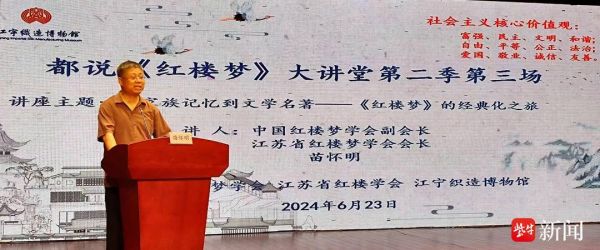 江宁织造博物馆
社会主义核心价值观：
富强、民主、文明、和谐；
自由、平等、公正、法治；
爱国、敬业、诚信、友善。
都说《红楼梦》大讲堂第二季第三场
讲座主题 家族记忆到文学名著——《红楼梦》的经典化之旅
讲人：中国红楼梦学会副会长
江苏省红楼梦学会会长
苗怀明
梦学会 江苏省红楼学会 江宁织造博物馆
2024年6月23日
苗怀明
紫牛新闻